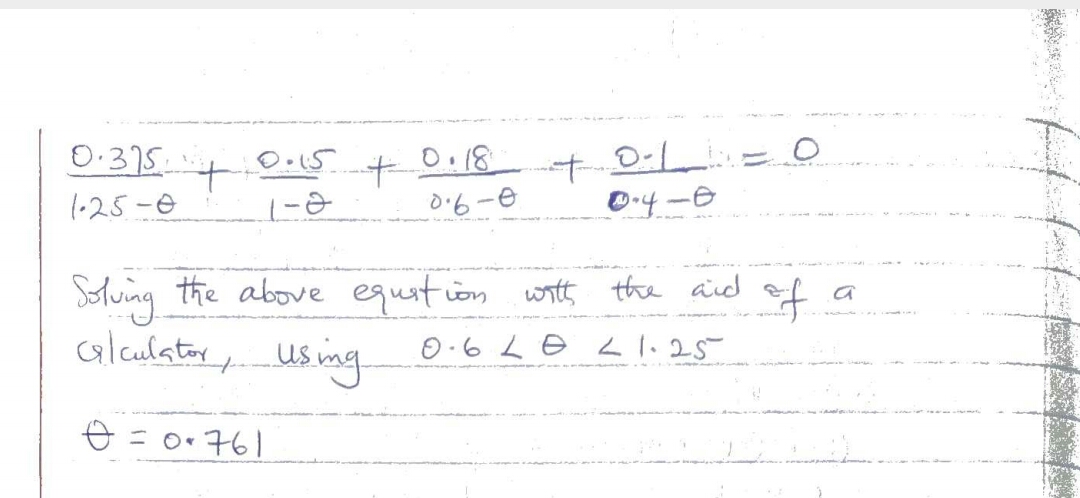 0.375 + 0.15 + 0.18 + 0.1 = 0
1.25-θ 1-θ 0.6-θ 0.4-θ
Solving the above equation with the aid of a
calculator, using 0.6 < θ < 1.25
θ = 0.761